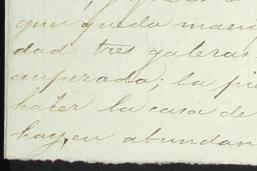 queda man
dad tres galeras
amparada; la pie
hacer la casa de
hay, en abundan